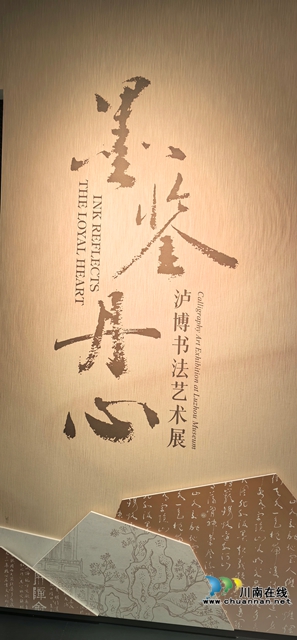 墨鉴丹心
INK REFLECTS
THE LOYAL HEART
泸博书法艺术展
Calligraphy Art Exhibition at Luzhou Museum
川南在线
www.chuannan.net